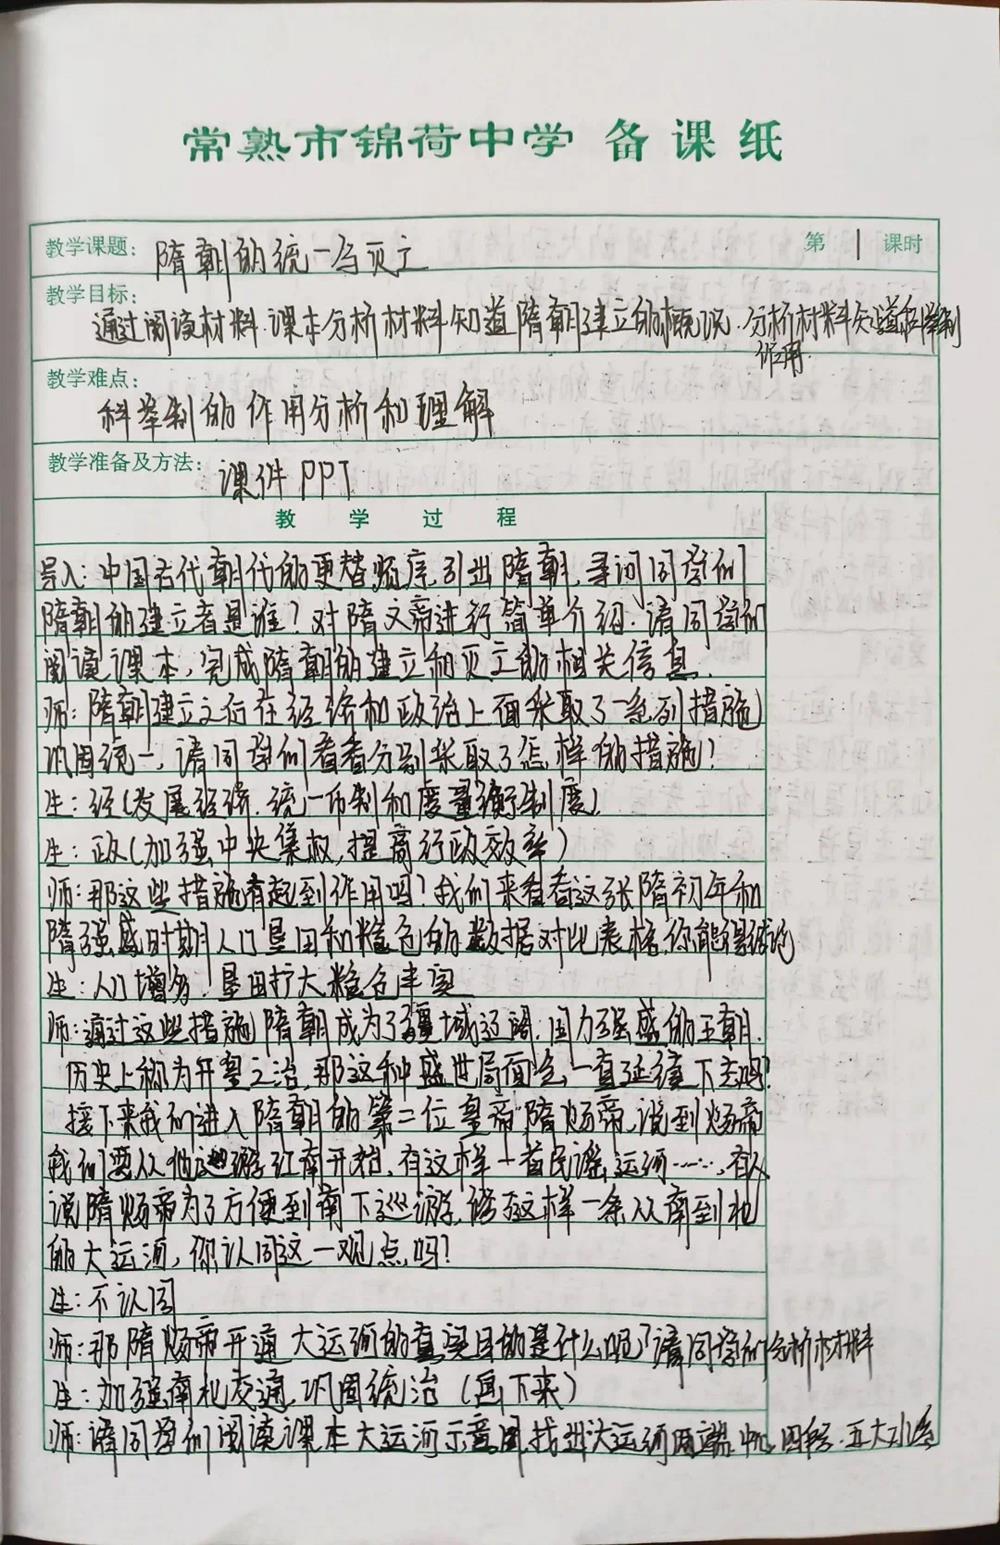 常熟市锦荷中学 备课纸
教学课题： 隋朝的统一与灭亡 第 1 课时
教学目标：
通过阅读材料.课本分析材料知道隋朝建立的概况.分析材料知道科举制
作用.
教学难点：
科举制的作用分析和理解
教学准备及方法： 课件 PPT
教 学 过 程
导入：中国古代朝代的更替顺序,引出隋朝,寻问同学们
隋朝的建立者是谁？对隋文帝进行简单介绍.请同学们
阅读课本，完成隋朝的建立和灭亡的相关信息.
师：隋朝建立之后在经济和政治上面采取了一系列措施
巩固统一，请同学们看看分别采取了怎样的措施？
生：经(发展经济.统一币制和度量衡制度)
生：政(加强中央集权,提高行政效率)
师：那这些措施有起到作用吗？我们来看看这张隋初年和
隋强盛时期人口垦田和粮仓的数据对比表格,你能得结论
生：人口增多.垦田扩大粮仓丰实
师：通过这些措施隋朝成为了疆域辽阔.国力强盛的王朝.
历史上称为开皇之治,那这种盛世局面会一直延续下去吗？
接下来我们进入隋朝的第二位皇帝,隋炀帝,说到炀帝
我们要从他巡游江南开始,有这样一首民谣,运河……,有人
说隋炀帝为了方便到南下巡游,修了这样一条从南到北
的大运河，你认同这一观点吗？
生：不认同
师：那隋炀帝开通大运河的真实目的是什么呢？请同学们分析材料
生：加强南北交通,巩固统治（画下来）
师：请同学们阅读课本大运河示意图,找出大运河两端.中心.四段.五大水系